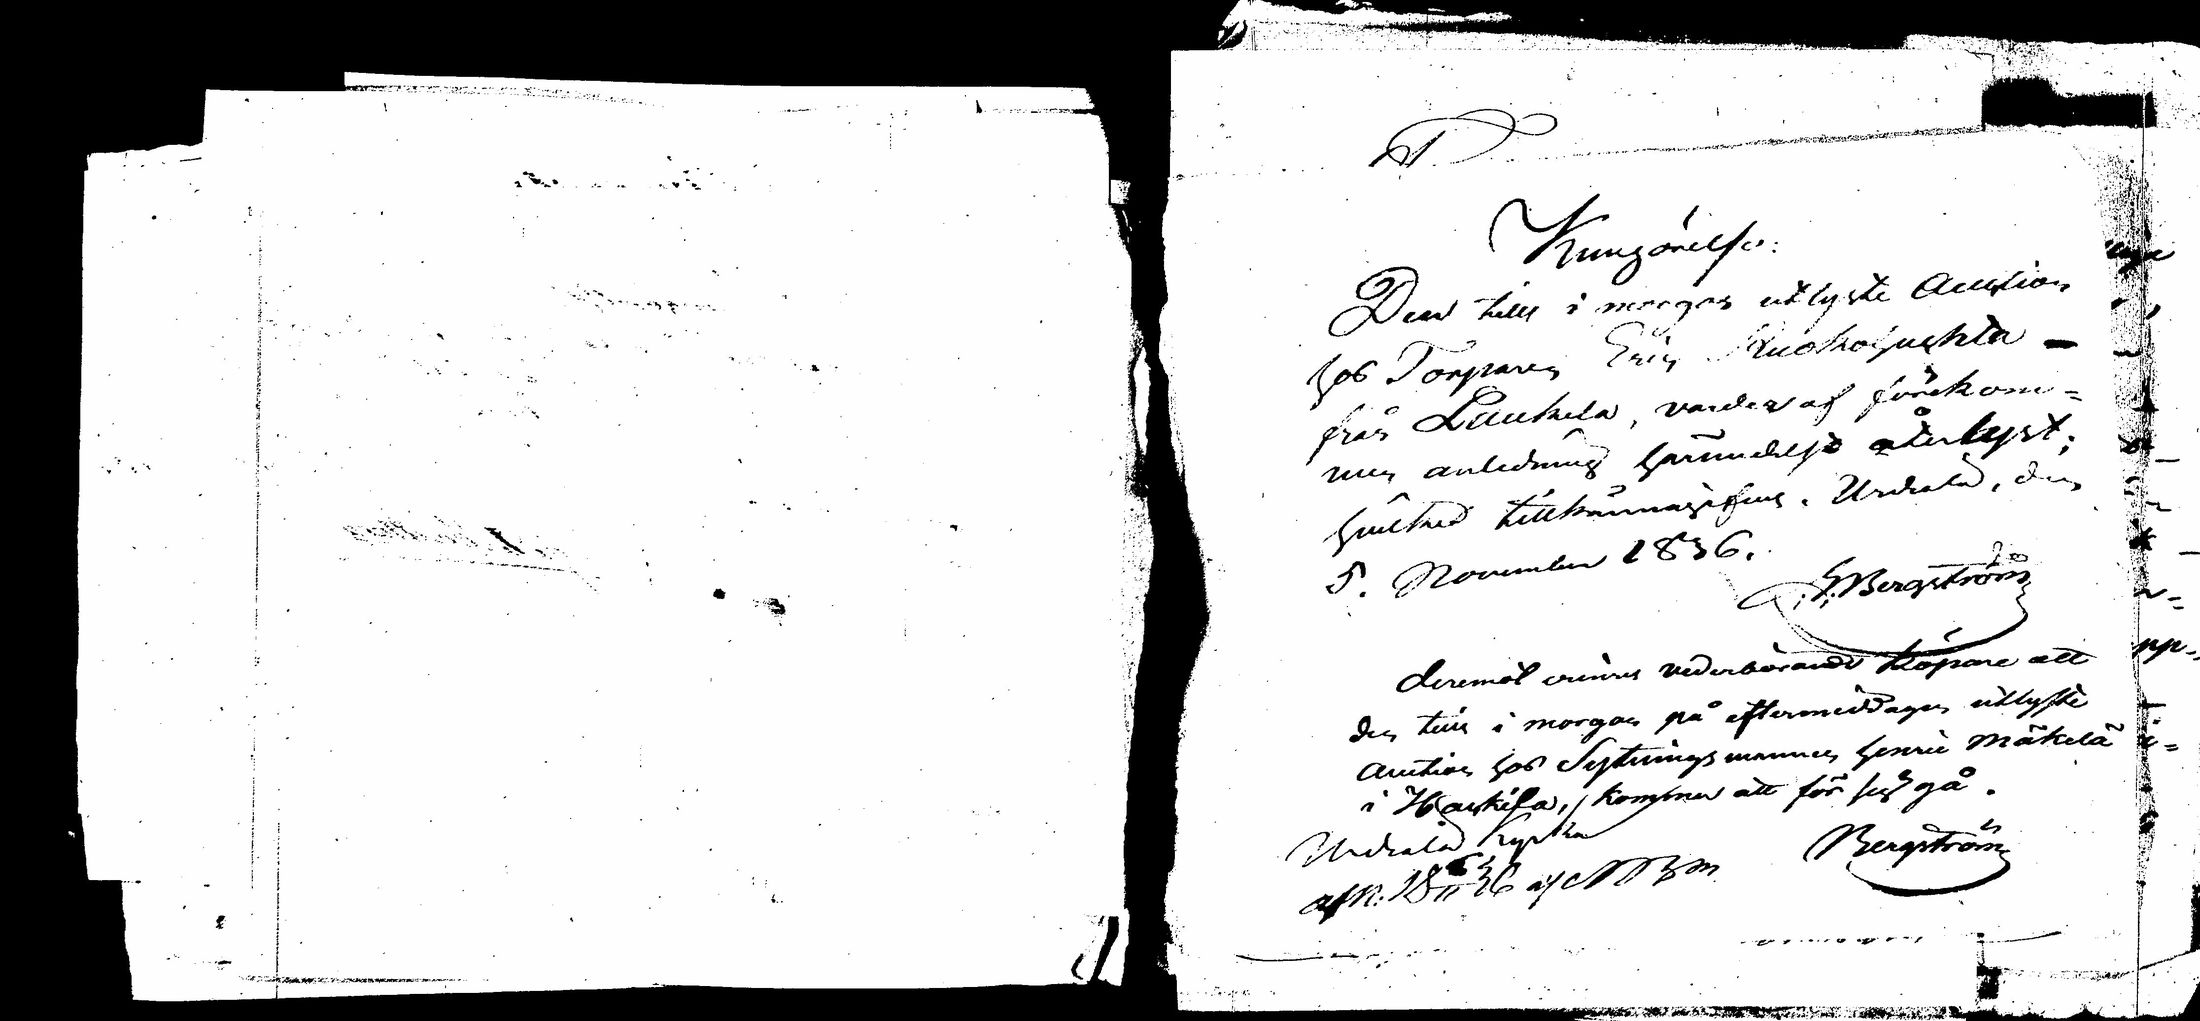 Kungörelse:
Den till i morgon utlyste Auction
hos Torparen Eric Ruokojuskila
från Laukela, varder af förekom=
men anledning härmedelst återlyst;
hvilket tillkännagifves. Urdiala, den
5. November 1836.
G. Bergström
deremot erinras vederbörande köpare att
den till i morgon på eftermiddagen utlyste
auction hos Sytningsmannen Henric Mäkelä
i Haskila, kommer att för sig gå.
Bergström
Urdiala Kyrka